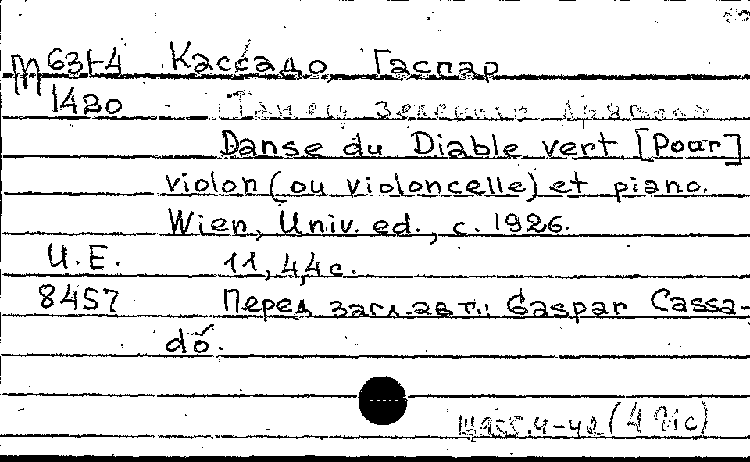 М 631-4 Кассадо, Гаспар
1420 [Танец зеленого
Danse du Diable vert [Pour]
violon (ou violoncelle) et piano.
Wien, Univ. ed., c. 1926.
U.E. 11, 4, 4 с.
8457 Перед загл. авт.: Gaspar Cassa-
dó.